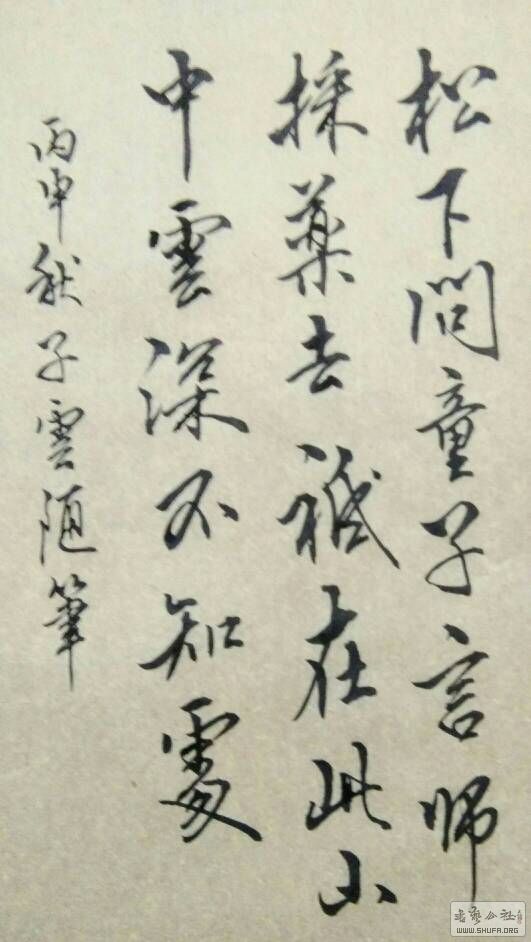 松下問童子言師
採藥去祗在此山
中雲深不知處
丙申秋子雲随筆
書藝公社
WWW.SHUFA.ORG